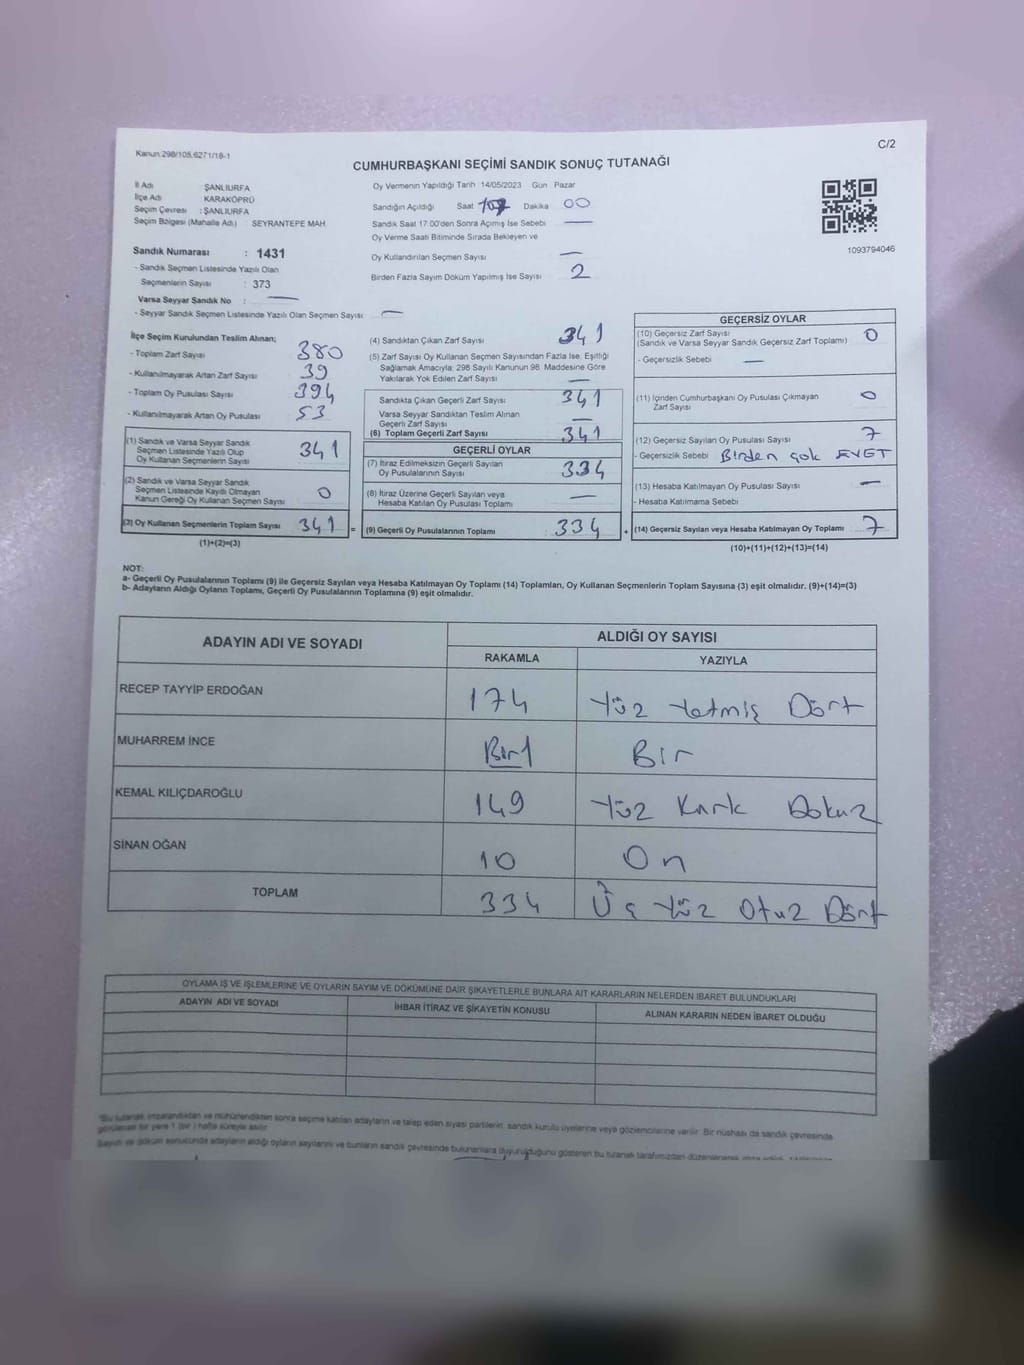 C/2
Kanun 298/105,6271/18-1
CUMHURBAŞKANI SEÇİMİ SANDIK SONUÇ TUTANAĞI
İl Adı : ŞANLIURFA
İlçe Adı KARAKÖPRÜ
Seçim Çevresi : ŞANLIURFA
Seçim Bölgesi (Mahalle Adı) : SEYRANTEPE MAH
Sandık Numarası : 1431
- Sandık Seçmen Listesinde Yazılı Olan
Seçmenlerin Sayısı : 373
Varsa Seyyar Sandık No : —
- Seyyar Sandık Seçmen Listesinde Yazılı Olan Seçmen Sayısı: —
Oy Vermenin Yapıldığı Tarih 14/05/2023 Gün Pazar
Sandığın Açıldığı Saat Dakika 00
Sandık Saat 17.00'den Sonra Açımış İse Sebebi —
Oy Verme Saati Bitiminde Sırada Bekleyen ve
Oy Kullandırılan Seçmen Sayısı —
Birden Fazla Sayım Döküm Yapılmış İse Sayısı 2
1093794046
İlçe Seçim Kurulundan Teslim Alınan;
- Toplam Zarf Sayısı 380
- Kullanılmayarak Artan Zarf Sayısı 39
- Toplam Oy Pusulası Sayısı 394
- Kullanılmayarak Artan Oy Pusulası 53
(1) Sandık ve Varsa Seyyar Sandık
Seçmen Listesinde Yazılı Olup
Oy Kullanan Seçmenlerin Sayısı 341
(2) Sandık ve Varsa Seyyar Sandık
Seçmen Listesinde Kayıtlı Olmayan
Kanun Gereği Oy Kullanan Seçmen Sayısı 0
(3) Oy Kullanan Seçmenlerin Toplam Sayısı 341 =
(1)+(2)=(3)
(4) Sandıktan Çıkan Zarf Sayısı 341
(5) Zarf Sayısı Oy Kullanan Seçmen Sayısından Fazla İse, Eşitliği
Sağlamak Amacıyla; 298 Sayılı Kanunun 98. Maddesine Göre
Yakılarak Yok Edilen Zarf Sayısı —
Sandıkta Çıkan Geçerli Zarf Sayısı 341
Varsa Seyyar Sandıktan Teslim Alınan
Geçerli Zarf Sayısı —
(6) Toplam Geçerli Zarf Sayısı 341
GEÇERLİ OYLAR
(7) İtiraz Edilmeksizin Geçerli Sayılan
Oy Pusulalarının Sayısı 334
(8) İtiraz Üzerine Geçerli Sayılan veya
Hesaba Katılan Oy Pusulası Sayısı —
(9) Geçerli Oy Pusulalarının Toplamı 334 +
GEÇERSİZ OYLAR
(10) Geçersiz Zarf Sayısı 0
(Sandık ve Varsa Seyyar Sandık Geçersiz Zarf Toplamı)
- Geçersizlik Sebebi —
(11) İçinden Cumhurbaşkanı Oy Pusulası Çıkmayan 0
Zarf Sayısı
(12) Geçersiz Sayılan Oy Pusulası Sayısı 7
- Geçersizlik Sebebi Birden çok EVET
(13) Hesaba Katılmayan Oy Pusulası Sayısı —
- Hesaba Katılmama Sebebi
(14) Geçersiz Sayılan veya Hesaba Katılmayan Oy Toplamı 7
(10)+(11)+(12)+(13)=(14)
NOT:
a- Geçerli Oy Pusulalarının Toplamı (9) ile Geçersiz Sayılan veya Hesaba Katılmayan Oy Toplamı (14) Toplamları, Oy Kullanan Seçmenlerin Toplam Sayısına (3) eşit olmalıdır. (9)+(14)=(3)
b- Adayların Aldığı Oyların Toplamı, Geçerli Oy Pusulalarının Toplamına (9) eşit olmalıdır.
ADAYIN ADI VE SOYADI ALDIĞI OY SAYISI
RAKAMLA YAZIYLA
RECEP TAYYİP ERDOĞAN 174 Yüz Yetmiş Dört
MUHARREM İNCE Bir1 Bir
KEMAL KILIÇDAROĞLU 149 Yüz Kırk Dokuz
SİNAN OĞAN 10 On
TOPLAM 334 Üç Yüz Otuz Dört
OYLAMA İŞ VE İŞLEMLERİNE VE OYLARIN SAYIM VE DÖKÜMÜNE DAİR ŞİKAYETLERLE BUNLARA AİT KARARLARIN NELERDEN İBARET BULUNDUKLARI
ADAYIN ADI VE SOYADI İHBAR İTİRAZ VE ŞİKAYETİN KONUSU ALINAN KARARIN NEDEN İBARET OLDUĞU
*Bu tutanak imzalandıktan ve mühürlendikten sonra seçime katılan adayların ve talep eden siyasi partilerin, sandık kurulu üyelerine veya gözlemcilerine verilir. Bir nüshası da sandık çevresinde
görülecek bir yere 1 (bir) hafta süreyle asılır.
Sayım ve döküm sonucunda adayların aldığı oyların sayılarını ve bunların sandık çevresinde bulunanlara duyurulduğunu gösteren bu tutanak tarafımızdan